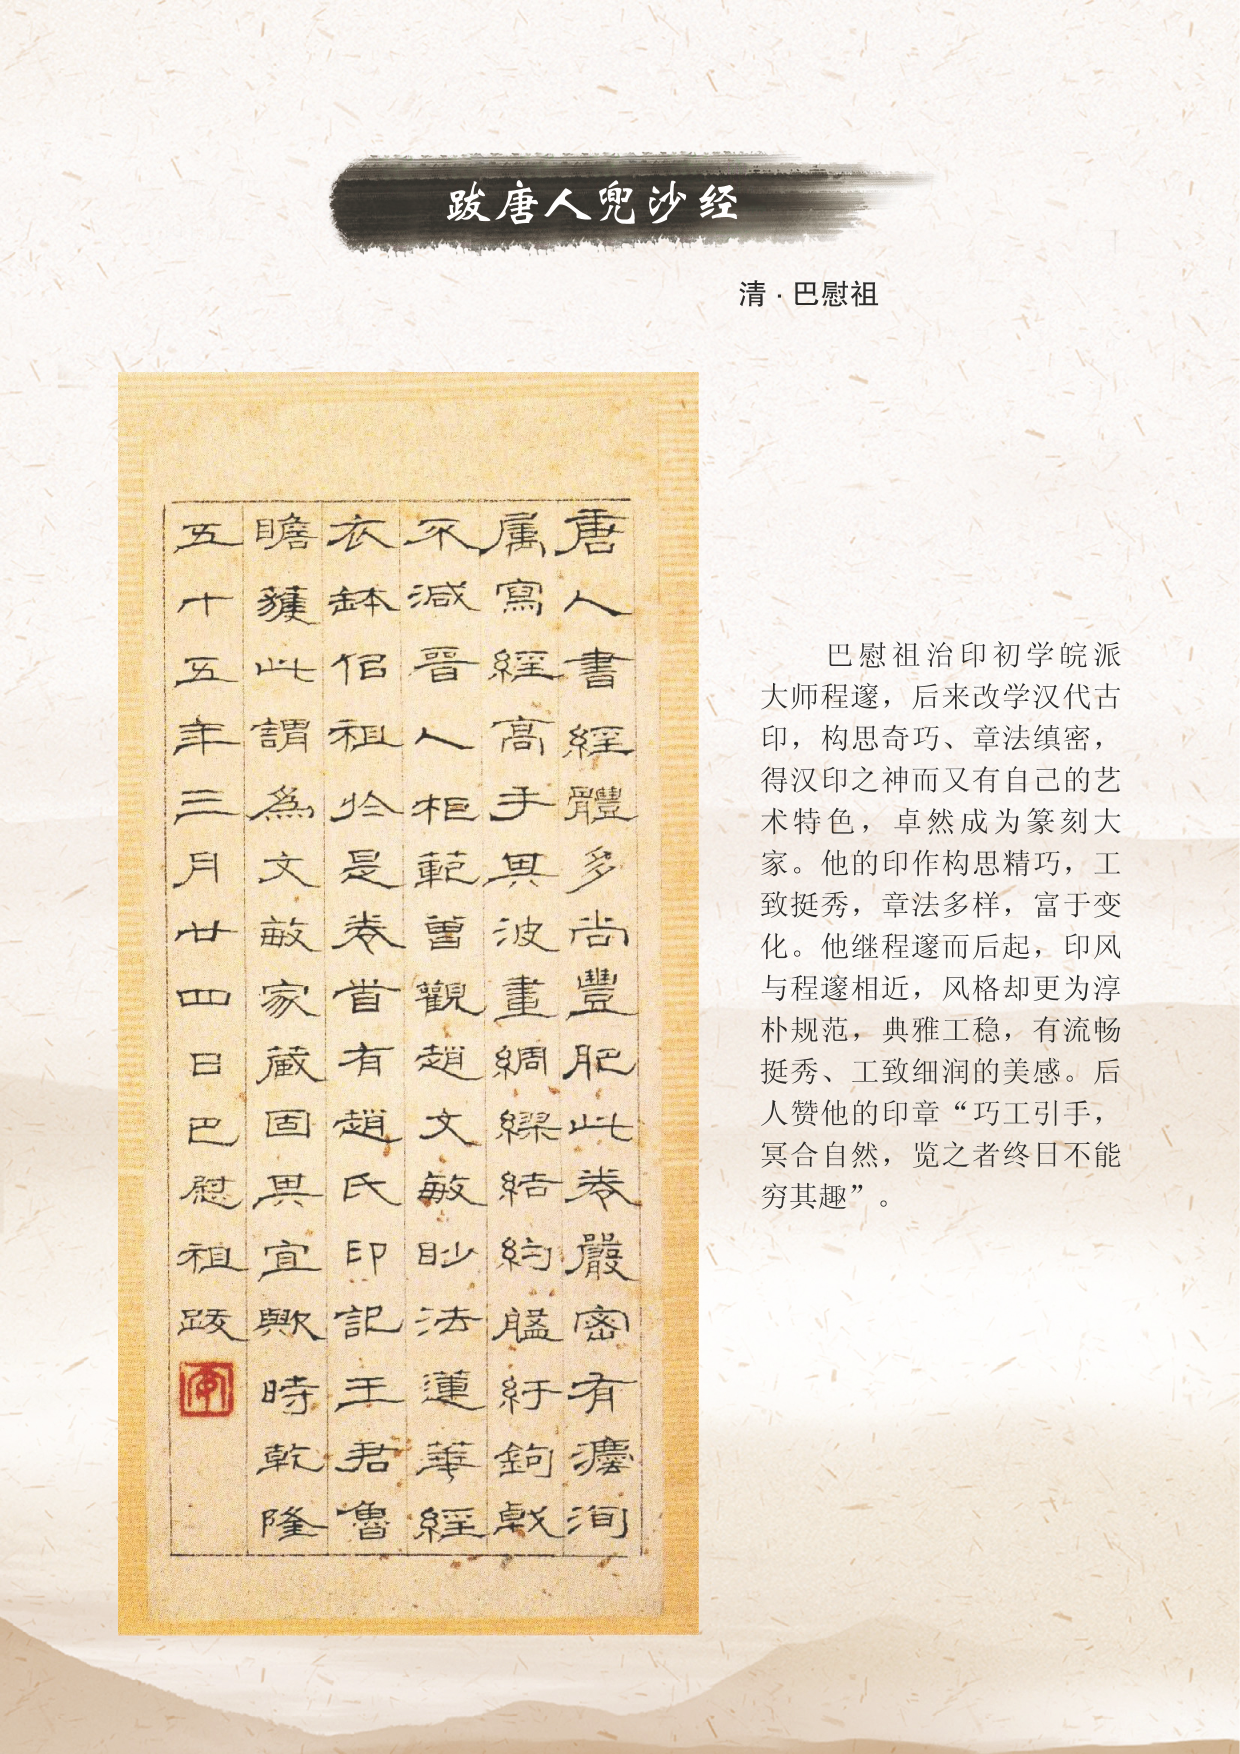 跋唐人兜沙经
清·巴慰祖
唐人書經體多尚豐肥此卷嚴密有灋洵
属寫經高手異波畫綢繆結約
不減晉人柜範曽觀趙文敏眇法蓮華經
衣鉢侣祖於是卷首有趙氏印記王君魯
瞻獲此謂為文敏家藏固異宜歟時乾隆
五十五年三月廿四日巴慰祖跋
巴慰祖治印初学皖派
大师程邃，后来改学汉代古
印，构思奇巧、章法缜密，
得汉印之神而又有自己的艺
术特色，卓然成为篆刻大
家。他的印作构思精巧，工
致挺秀，章法多样，富于变
化。他继程邃而后起，印风
与程邃相近，风格却更为淳
朴规范，典雅工稳，有流畅
挺秀、工致细润的美感。后
人赞他的印章“巧工引手，
冥合自然，览之者终日不能
穷其趣”。